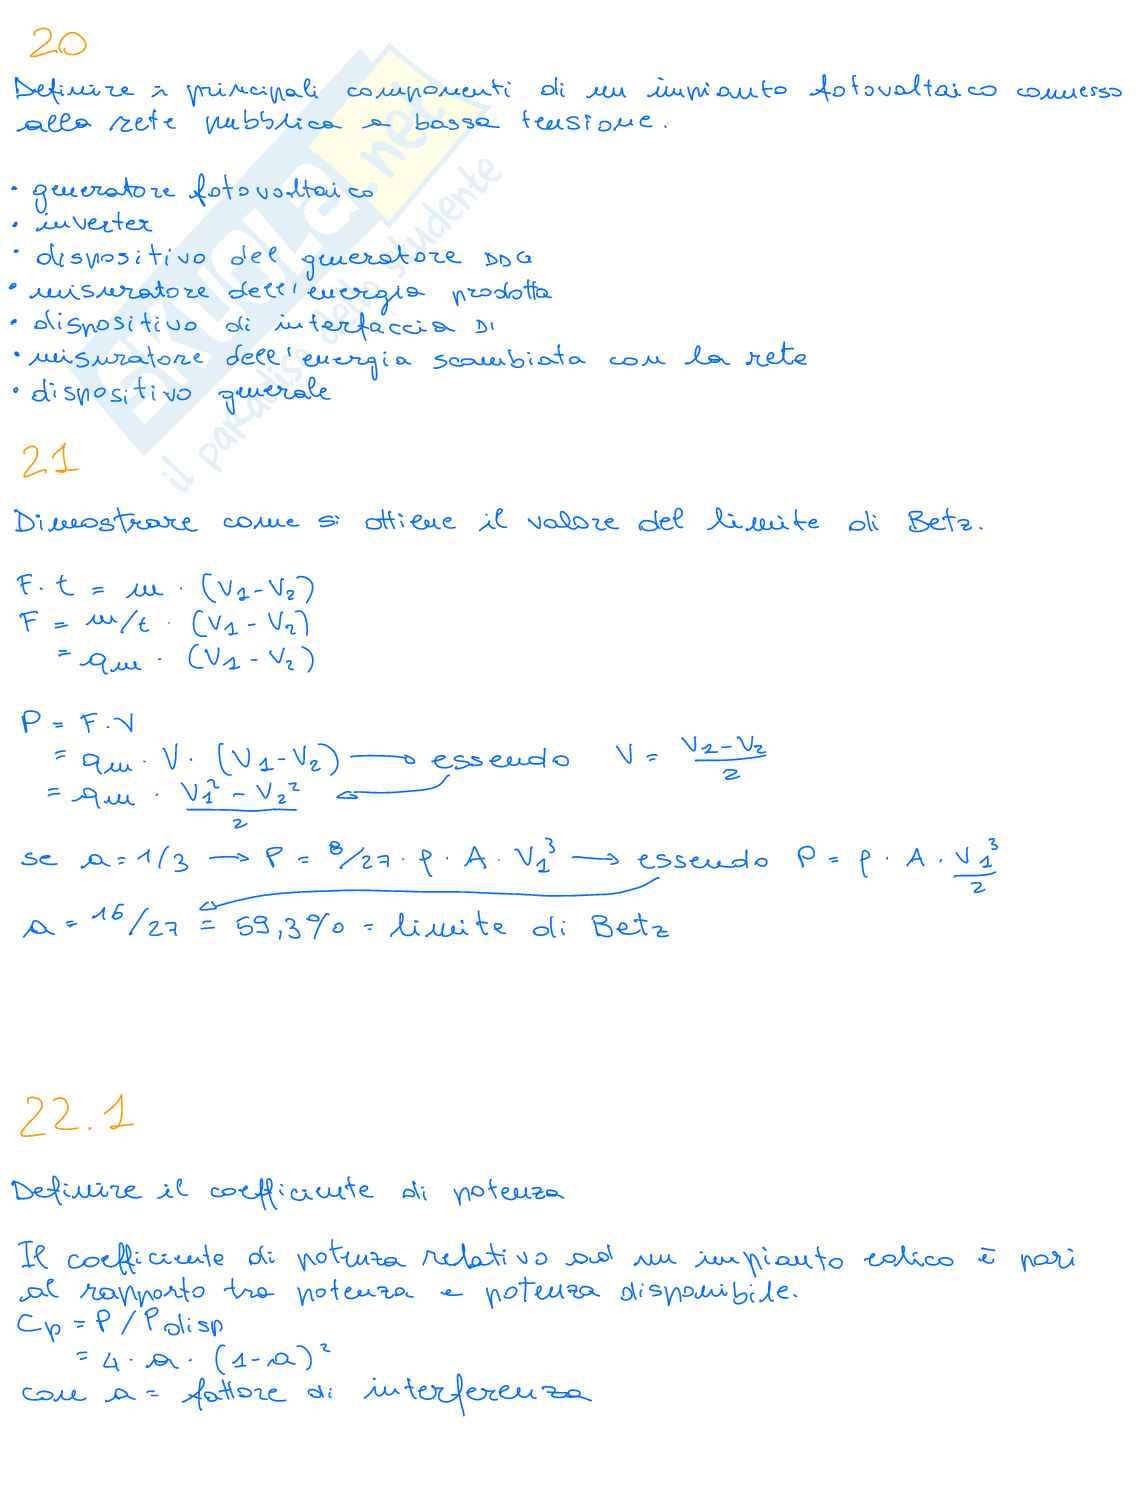 20
Definire i principali componenti di un impianto fotovoltaico connesso
alla rete pubblica a bassa tensione.
• generatore fotovoltaico
• inverter
• dispositivo del generatore DDG
• misuratore dell'energia prodotta
• dispositivo di interfaccia DI
• misuratore dell'energia scambiata con la rete
• dispositivo generale
SKUOLA.net
il paradiso dello studente
21
Dimostrare come si ottiene il valore del limite di Betz.
F · t = m · (V1 - V2)
F = m/t · (V1 - V2)
= qm · (V1 - V2)
P = F · V
= qm · V · (V1 - V2) → essendo V = (V1 - V2)/2
= qm · (V1² - V2²)/2 ←
se a = 1/3 → P = 8/27 · ρ · A · V1³ → essendo P = ρ · A · V1³/2
a = 16/27 = 59,3% = limite di Betz
22.1
Definire il coefficiente di potenza
Il coefficiente di potenza relativo ad un impianto eolico è pari
al rapporto tra potenza e potenza disponibile.
Cp = P / Pdisp
= 4 · a · (1 - a)²
con a = fattore di interferenza